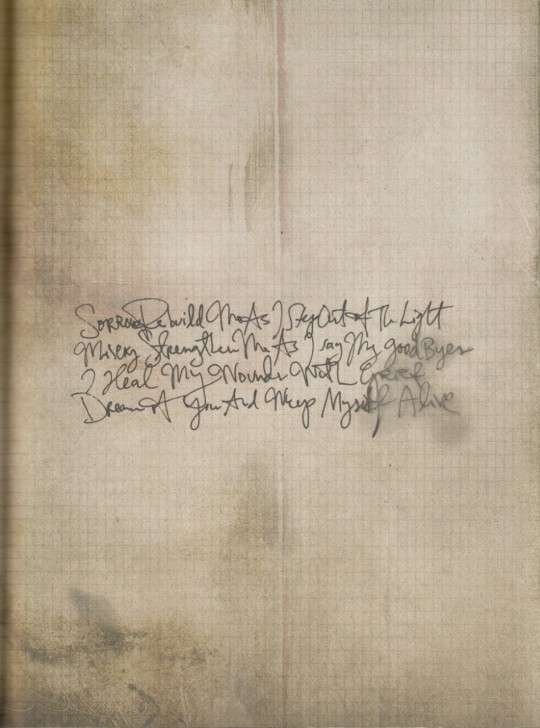 Sorrow Rebuild Me As I Step Out of The Light
Misery Strengthen Me As I say My goodByes
I Heal My Wounds With Grief
Dream of You And Weep Myself Alive